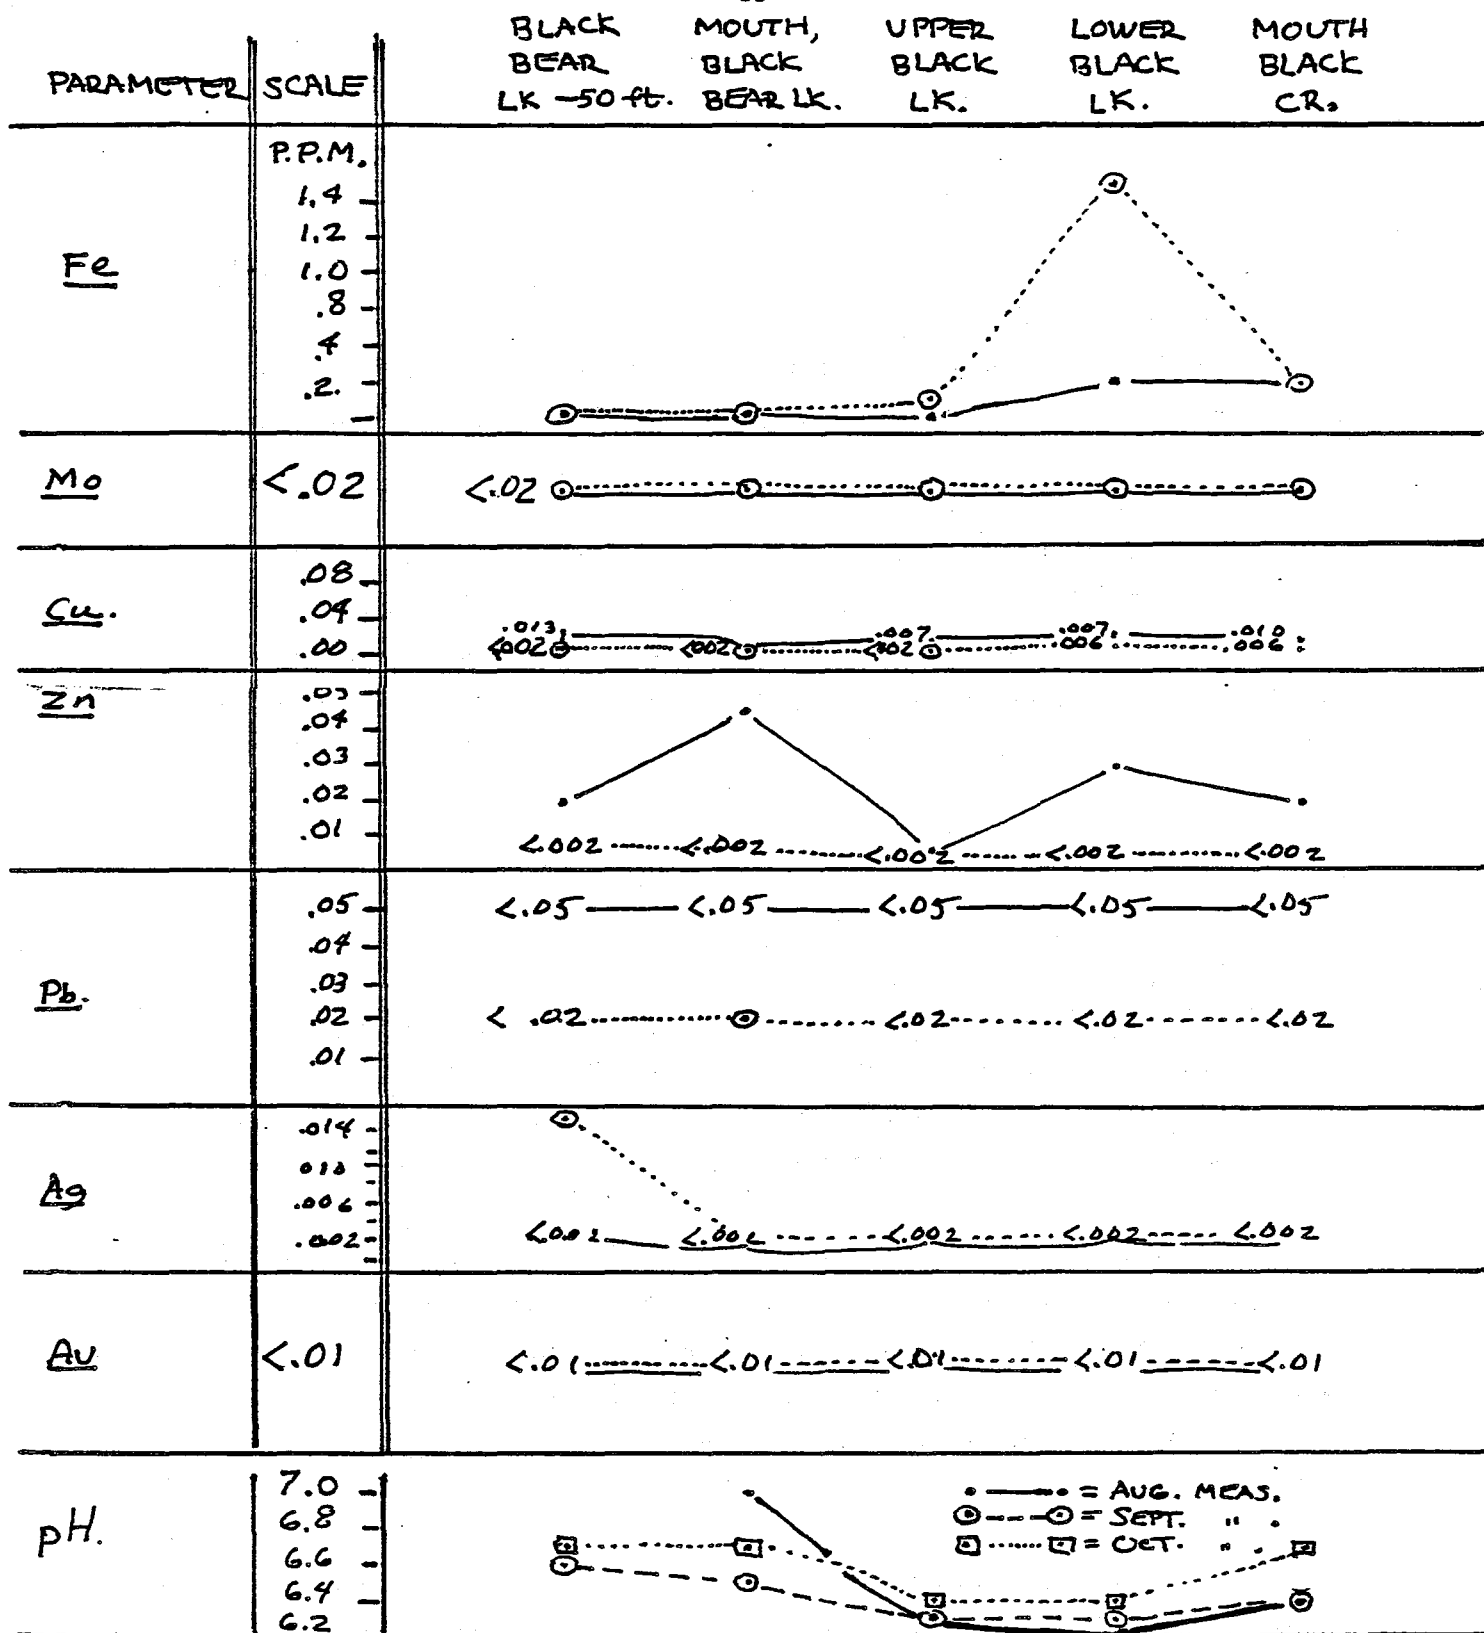 PARAMETER SCALE BLACK BEAR LK -50 ft. MOUTH, BLACK BEAR LK. UPPER BLACK LK. LOWER BLACK LK. MOUTH BLACK CR.
P.P.M.
Fe
1.4
1.2
1.0
.8
.4
.2
Mo <.02 <.02
Cu.
.08
.04
.00
.013 .007 .007 .010
<002 <002 <002 .006 .006
Zn
.04
.03
.02
.01
<.002 <.002 <.002 <.002 <.002
Pb.
.05 <.05 <.05 <.05 <.05 <.05
.04
.03
.02 < .02 <.02 <.02 <.02
.01
Ag
.014
.010
.006
.002 <.002 <.002 <.002 <.002 <.002
Au <.01 <.01 <.01 <.01 <.01 <.01
pH.
7.0 = AUG. MEAS.
6.8 = SEPT. " .
6.6 = OCT. " .
6.4
6.2